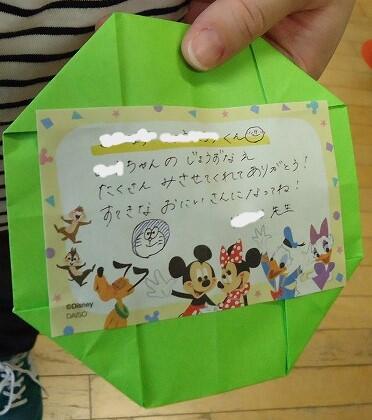 くん
ちゃんの じょうずなえ
たくさん みさせてくれてありがとう!
すてきな おにいさんになってね!
先生
©Disney
DAISO